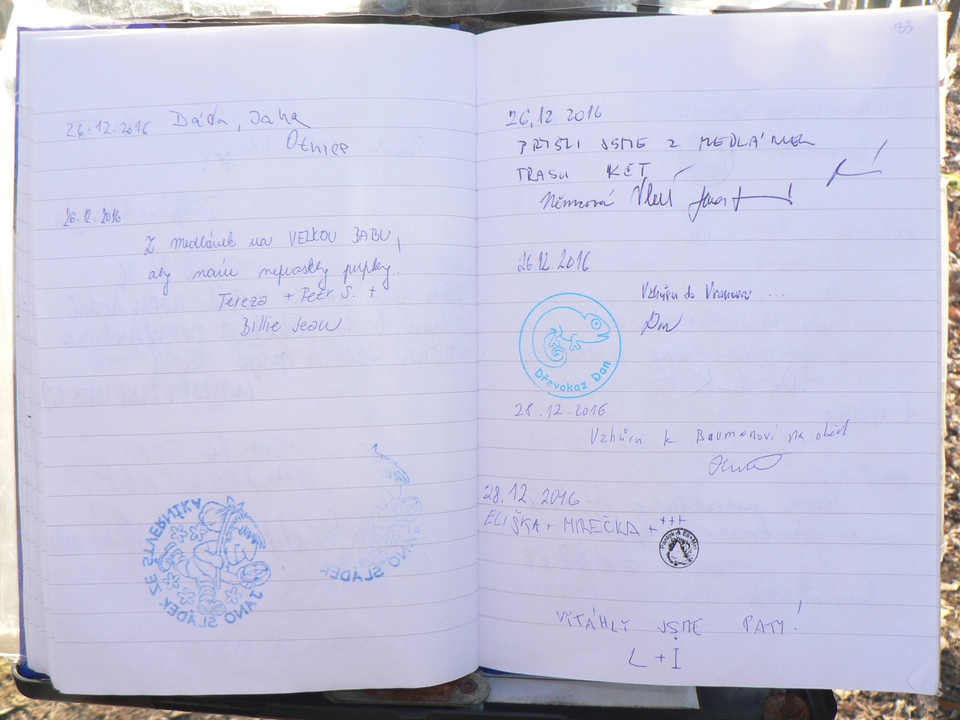 26.12.2016 Dáďa, Jana
Otnice
26.12.2016
Z medlánek na VELKOU BABU,
aby nám nepraskly pupky.
Tereza + Petr S. +
Billie Jean
JANO SLÁDEK ZE ŠTVERNÍKA
JANO SLÁDEK
33
26.12 2016
PŘIŠLI JSME Z MEDLÁNEK
TRASU KČT
Němcová
26.12.2016
Vzhůru do Vranova ...
Dan
Dřevokaz Dan
28.12.2016
Vzhůru k Baumanovi na oběd
28.12.2016
ELIŠKA + MIREČKA + +++
VYTÁHLY JSME PATY!
L + I